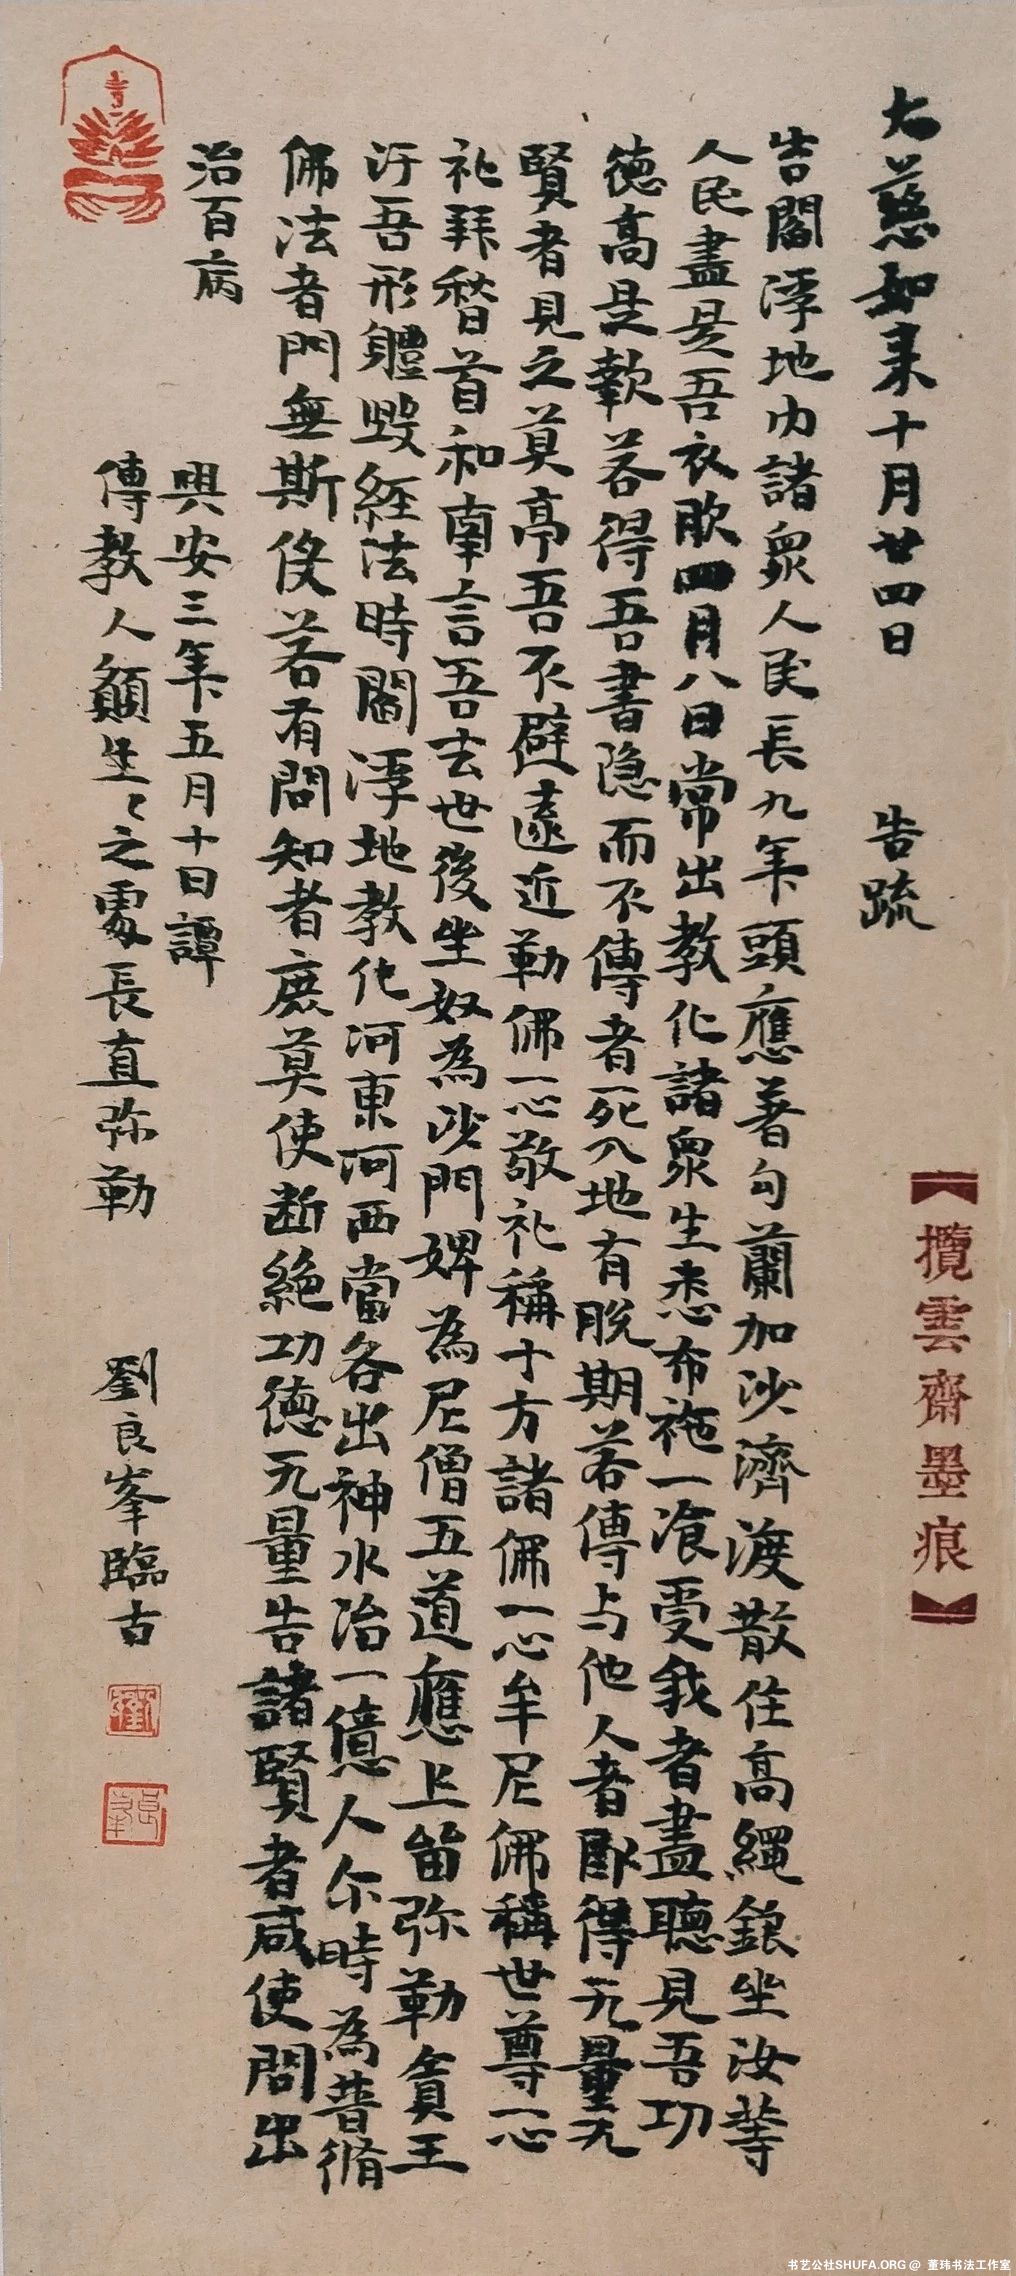 大慈如来十月廿四日　告疏
告閻浮地内諸衆人民長九年頭應著句蘭加沙濟渡散住高繩銀坐汝等
人民盡是吾衣
四月八日常出教化諸衆生悉布施一飡受我者盡聽見吾功
德高是歎若得吾書隐而不傳者死入地有脱期若傳与他人者
得无量无
賢者見之莫
吾不避遠近勒佛一心敬礼稱十方諸佛一心牟尼佛稱世尊一心
礼拜稽首和南言吾去世後坐奴為沙門婢為尼僧五道應上
弥勒貪王
汙吾形體毀經法時閻浮地教化河東河西當各出神水治一億人尔時為普脩
佛法者門無斯伇若有問知者庶莫使断絶功德无量告諸賢者咸使問出
治百病
興安三年五月十日譚
傳教人願生〻之處長直弥勒
劉良峯臨古
【攬雲齋墨痕】
书艺公社SHUFA.ORG @ 董玮书法工作室